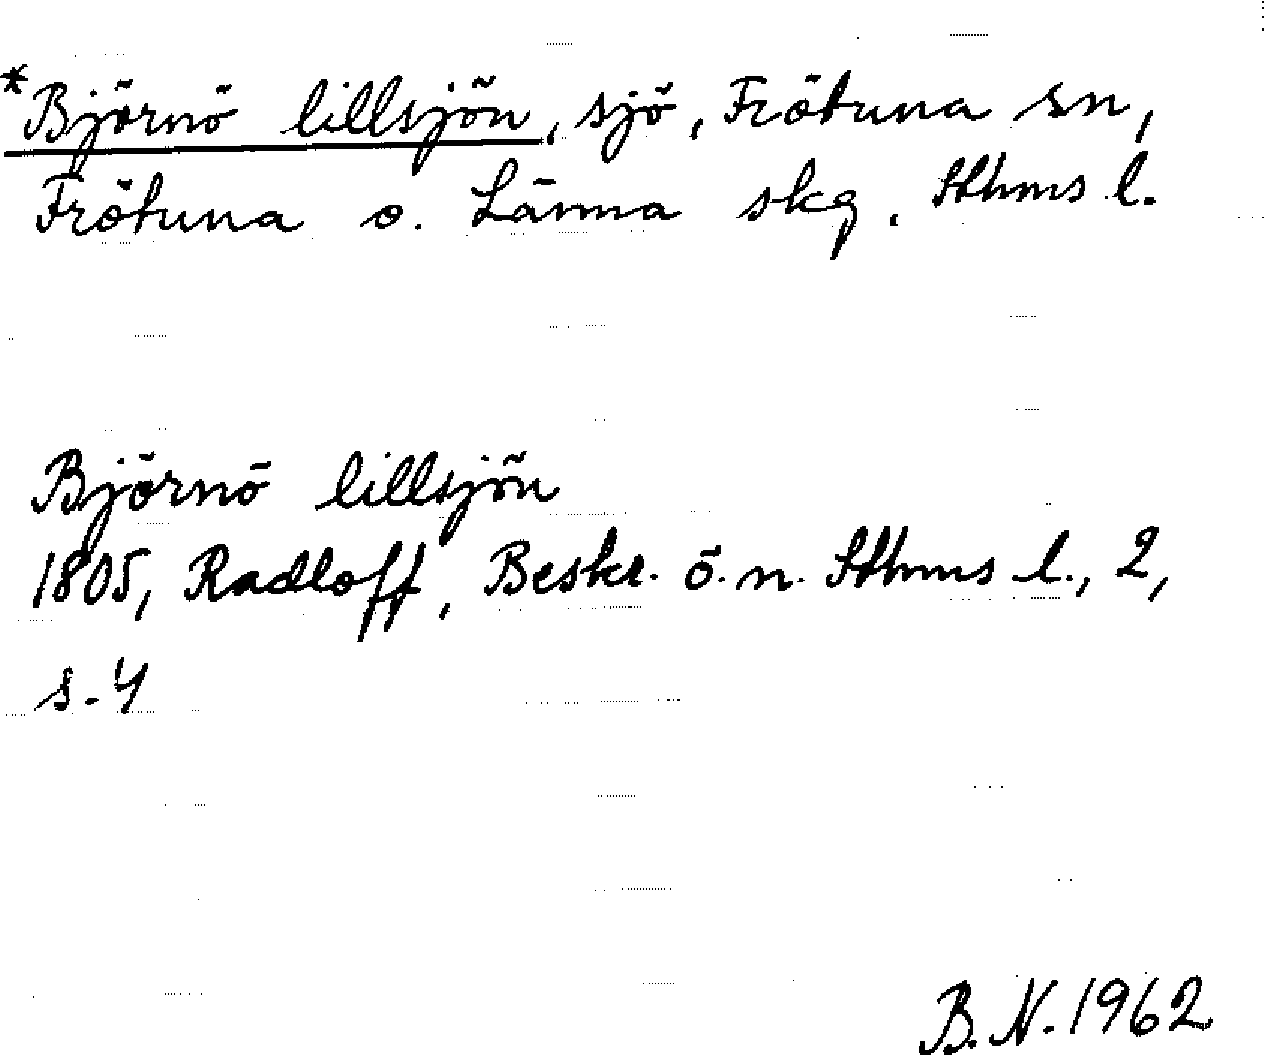 *Björnö lillsjön, sjö, Frötuna sn,
Frötuna o. Länna skg. Sthms l.
Björnö lillsjön
1805, Radloff, Beskr. ö. n. Sthms l., 2,
s. 4
B. N. 1962